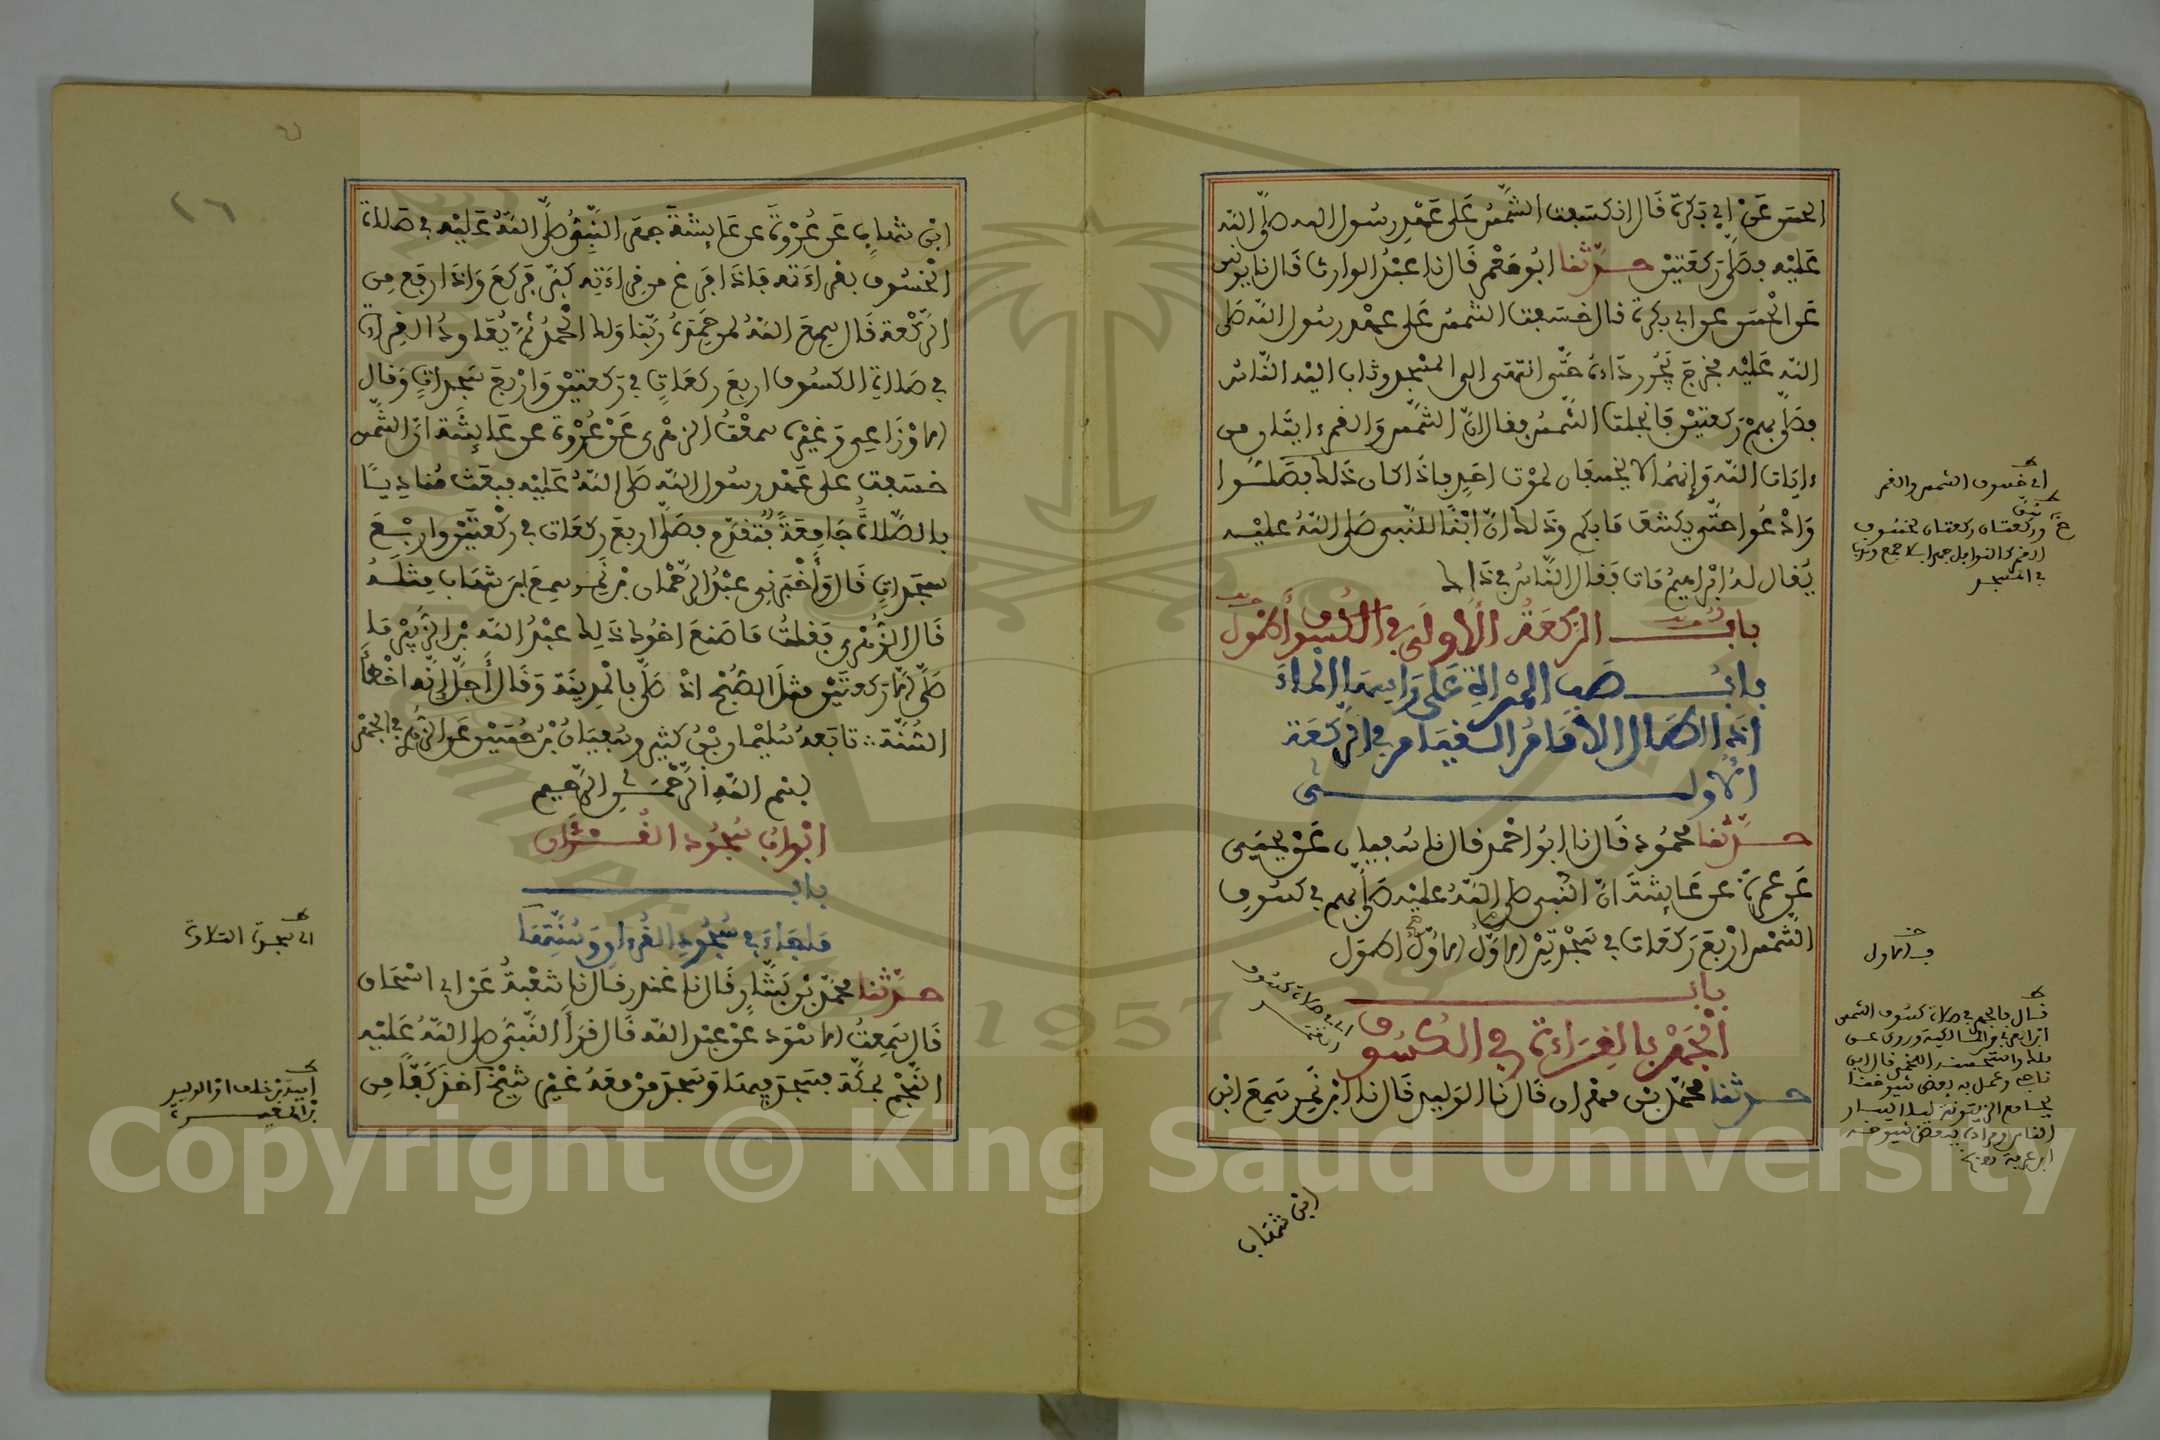 الحسن عن أبي بكرة قال انكسفت الشمس على عهد رسول الله صلى الله
عليه فصلى ركعتين حدثنا ابو معمر قال نا عبد الوارث قال نا يونس
عن الحسن عن ابي بكرة قال خسفت الشمس على عهد رسول الله صلى
الله عليه فخرج يجر رداءه حتى انتهى الى المسجد وثاب اليه الناس
فصلى بهم ركعتين فانجلت الشمس فقال ان الشمس والقمر ءايتان من
ءايات الله وانهما لا يخسفان لموت احد فاذا كان ذلك فصلوا
وادعوا حتى يكشف ما بكم وذلك ان ابنا للنبي صلى الله عليه
يقال له ابراهيم مات فقال الناس في ذاك
باب الركعة الأولى في الكسوف أطول
باب صب المرأة على رأسها الماء
اذا اطال الامام القيام في الركعة
الأولى
حدثنا محمود قال نا ابو احمد قال نا سفيان عن يحيى
عن عمرة عن عائشة ان النبي صلى الله عليه صلى بهم في كسوف
الشمس اربع ركعات في سجدتين الاول الاول اطول
باب
الجهر بالقراءة في الكسوف
حدثنا محمد بن مهران قال نا الوليد قال نا ابن نمر سمع ابن
ابن شهاب
اي خسوف الشمس والقمر
وركعتان ركعتان لخسوف
القمر كالنوافل جهرا بلا جمع
في المسجد
في صلاة كسوف
ابن شهاب عن عروة عن عائشة جهر النبي صلى الله عليه في صلاة
الخسوف بقراءته فاذا فرغ من قراءته كبر فركع واذا رفع من
الركعة قال سمع الله لمن حمده ربنا ولك الحمد ثم يعاود القراءة
في صلاة الكسوف اربع ركعات في ركعتين واربع سجدات وقال
الاوزاعي وغيره سمعت الزهري عن عروة عن عائشة ان الشمس
خسفت على عهد رسول الله صلى الله عليه فبعث مناديا
بالصلاة جامعة فتقدم فصلى اربع ركعات في ركعتين واربع
سجدات قال وأخبرني عبد الرحمان بن نمر سمع ابن شهاب مثله
قال الزهري فقلت ما صنع اخوك ذلك عبد الله بن الزبير ما
صلى الا ركعتين مثل الصبح اذ صلى بالمدينة وقال أجل انه اخطأ
السنة تابعه سليمان بن كثير وسفيان بن حسين عن الزهري في الجهر
بسم الله الرحمن الرحيم
ابواب سجود القرءان
باب
ما جاء في سجود القرءان وسنتها
حدثنا محمد بن بشار قال نا غندر قال نا شعبة عن ابي اسحاق
قال سمعت الاسود عن عبد الله قال قرأ النبي صلى الله عليه
النجم بمكة فسجد فيها وسجد من معه غير شيخ أخذ كفا من
اي سجدة التلاوة
أمية بن خلف او الوليد
بن المغيرة
٢٦
Copyright © King Saud University
1957